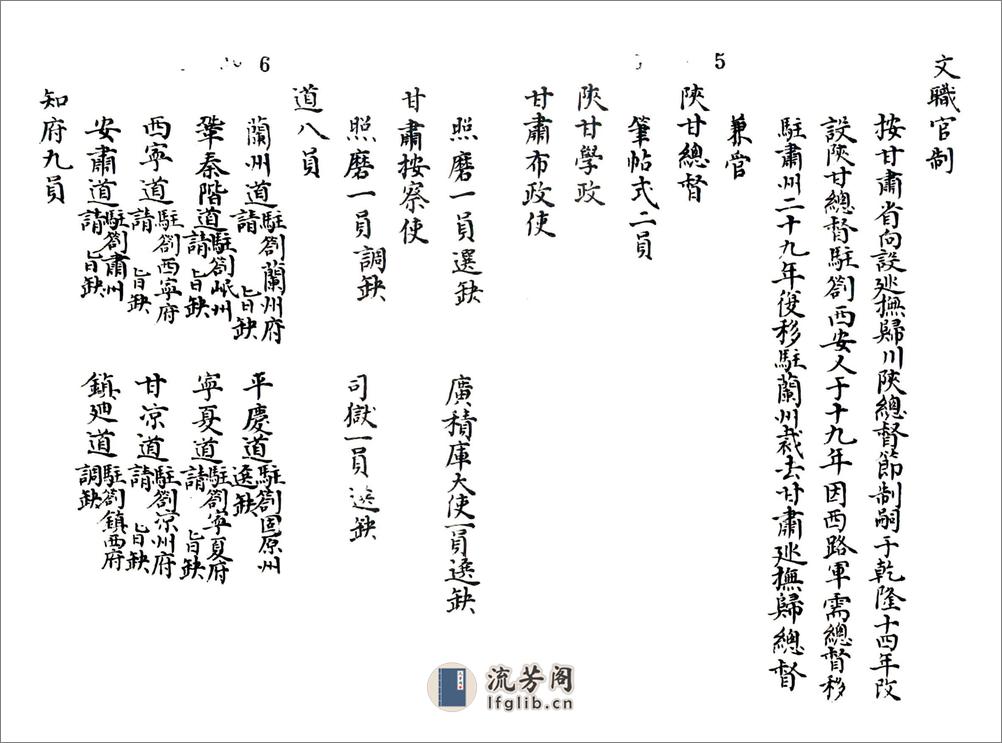 5
文職官制
按甘肅省向設廵撫歸川陝總督節制嗣于乾隆十四年改
設陝甘總督駐劄西安又于十九年因西路軍需總督移
駐肅州二十九年復移駐蘭州裁去甘肅廵撫歸總督
兼管
陝甘總督
筆帖式二員
陝甘學政
甘肅布政使
照磨一員選缺 廣積庫大使一員選缺
6
甘肅按察使
照磨一員調缺 司獄一員選缺
道八員
蘭州道駐劄蘭州府請 旨缺 平慶道駐劄固原州選缺
鞏秦階道駐劄岷州請 旨缺 寧夏道駐劄寧夏府請 旨缺
西寧道駐劄西寧府請 旨缺 甘凉道駐劄凉州府請 旨缺
安肅道駐劄肅州請 旨缺 鎮廸道駐劄鎮西府調缺
知府九員
流芳阁
lfglib.cn